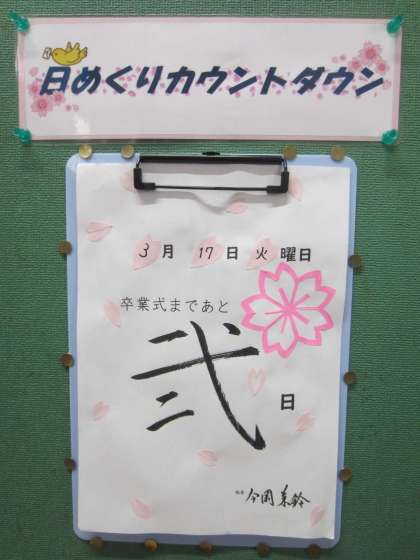 日めくりカウントダウン
3月 17日 火曜日
卒業式まであと
弐
日